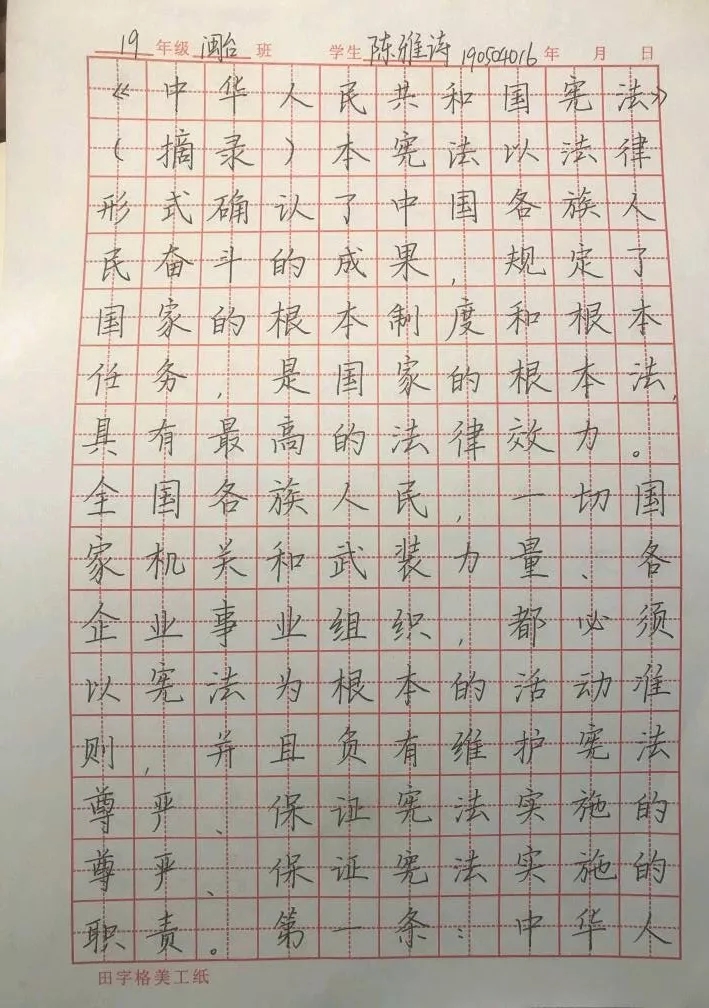 19 年级 闽台 班 学生 陈雅诗 190504016 年 月 日
《中华人民共和国宪法》
(摘录)本宪法以法律
形式确认了中国各族人
民奋斗的成果,规定了
国家的根本制度和根本
任务,是国家的根本法,
具有最高的法律效力。
全国各族人民,一切国
家机关和武装力量、各
企业事业组织,都必须
以宪法为根本的活动准
则,并且负有维护宪法
尊严、保证宪法实施的
尊严、保证宪法实施的
职责。第一条:中华人
田字格美工纸